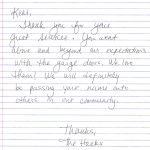 Kris,
Thank you for your
great service. You went
above and beyond our expectations
with the garage doors. We love
them! We will definitely
be passing your name onto
others in our community.
Thanks,
The Hecks